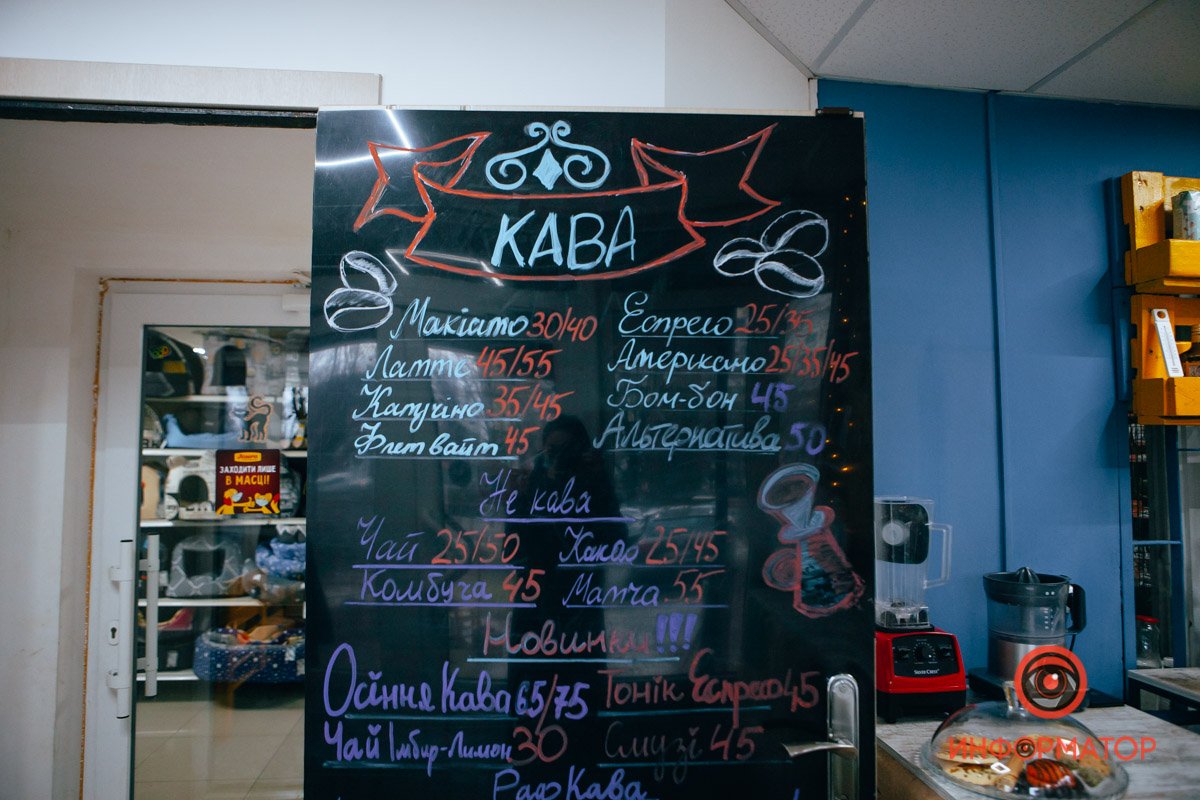 КАВА
Макіато 30/40
Еспресо 25/35
Латте 45/55
Амерікано 25/35/45
Капучіно 35/45
Бом-бон 45
Флет вайт 45
Альтернатива 50
Не кава
Чай 25/50
Какао 25/45
Комбуча 45
Матча 55
Новинки!!!
Осіння Кава 65/75
Тонік Еспресо 45
Чай Імбир-Лимон 30
Смузі 45
Раф Кава
ЗАХОДИТИ ЛИШЕ
В МАСЦІ!
ИНФОРМАТОР